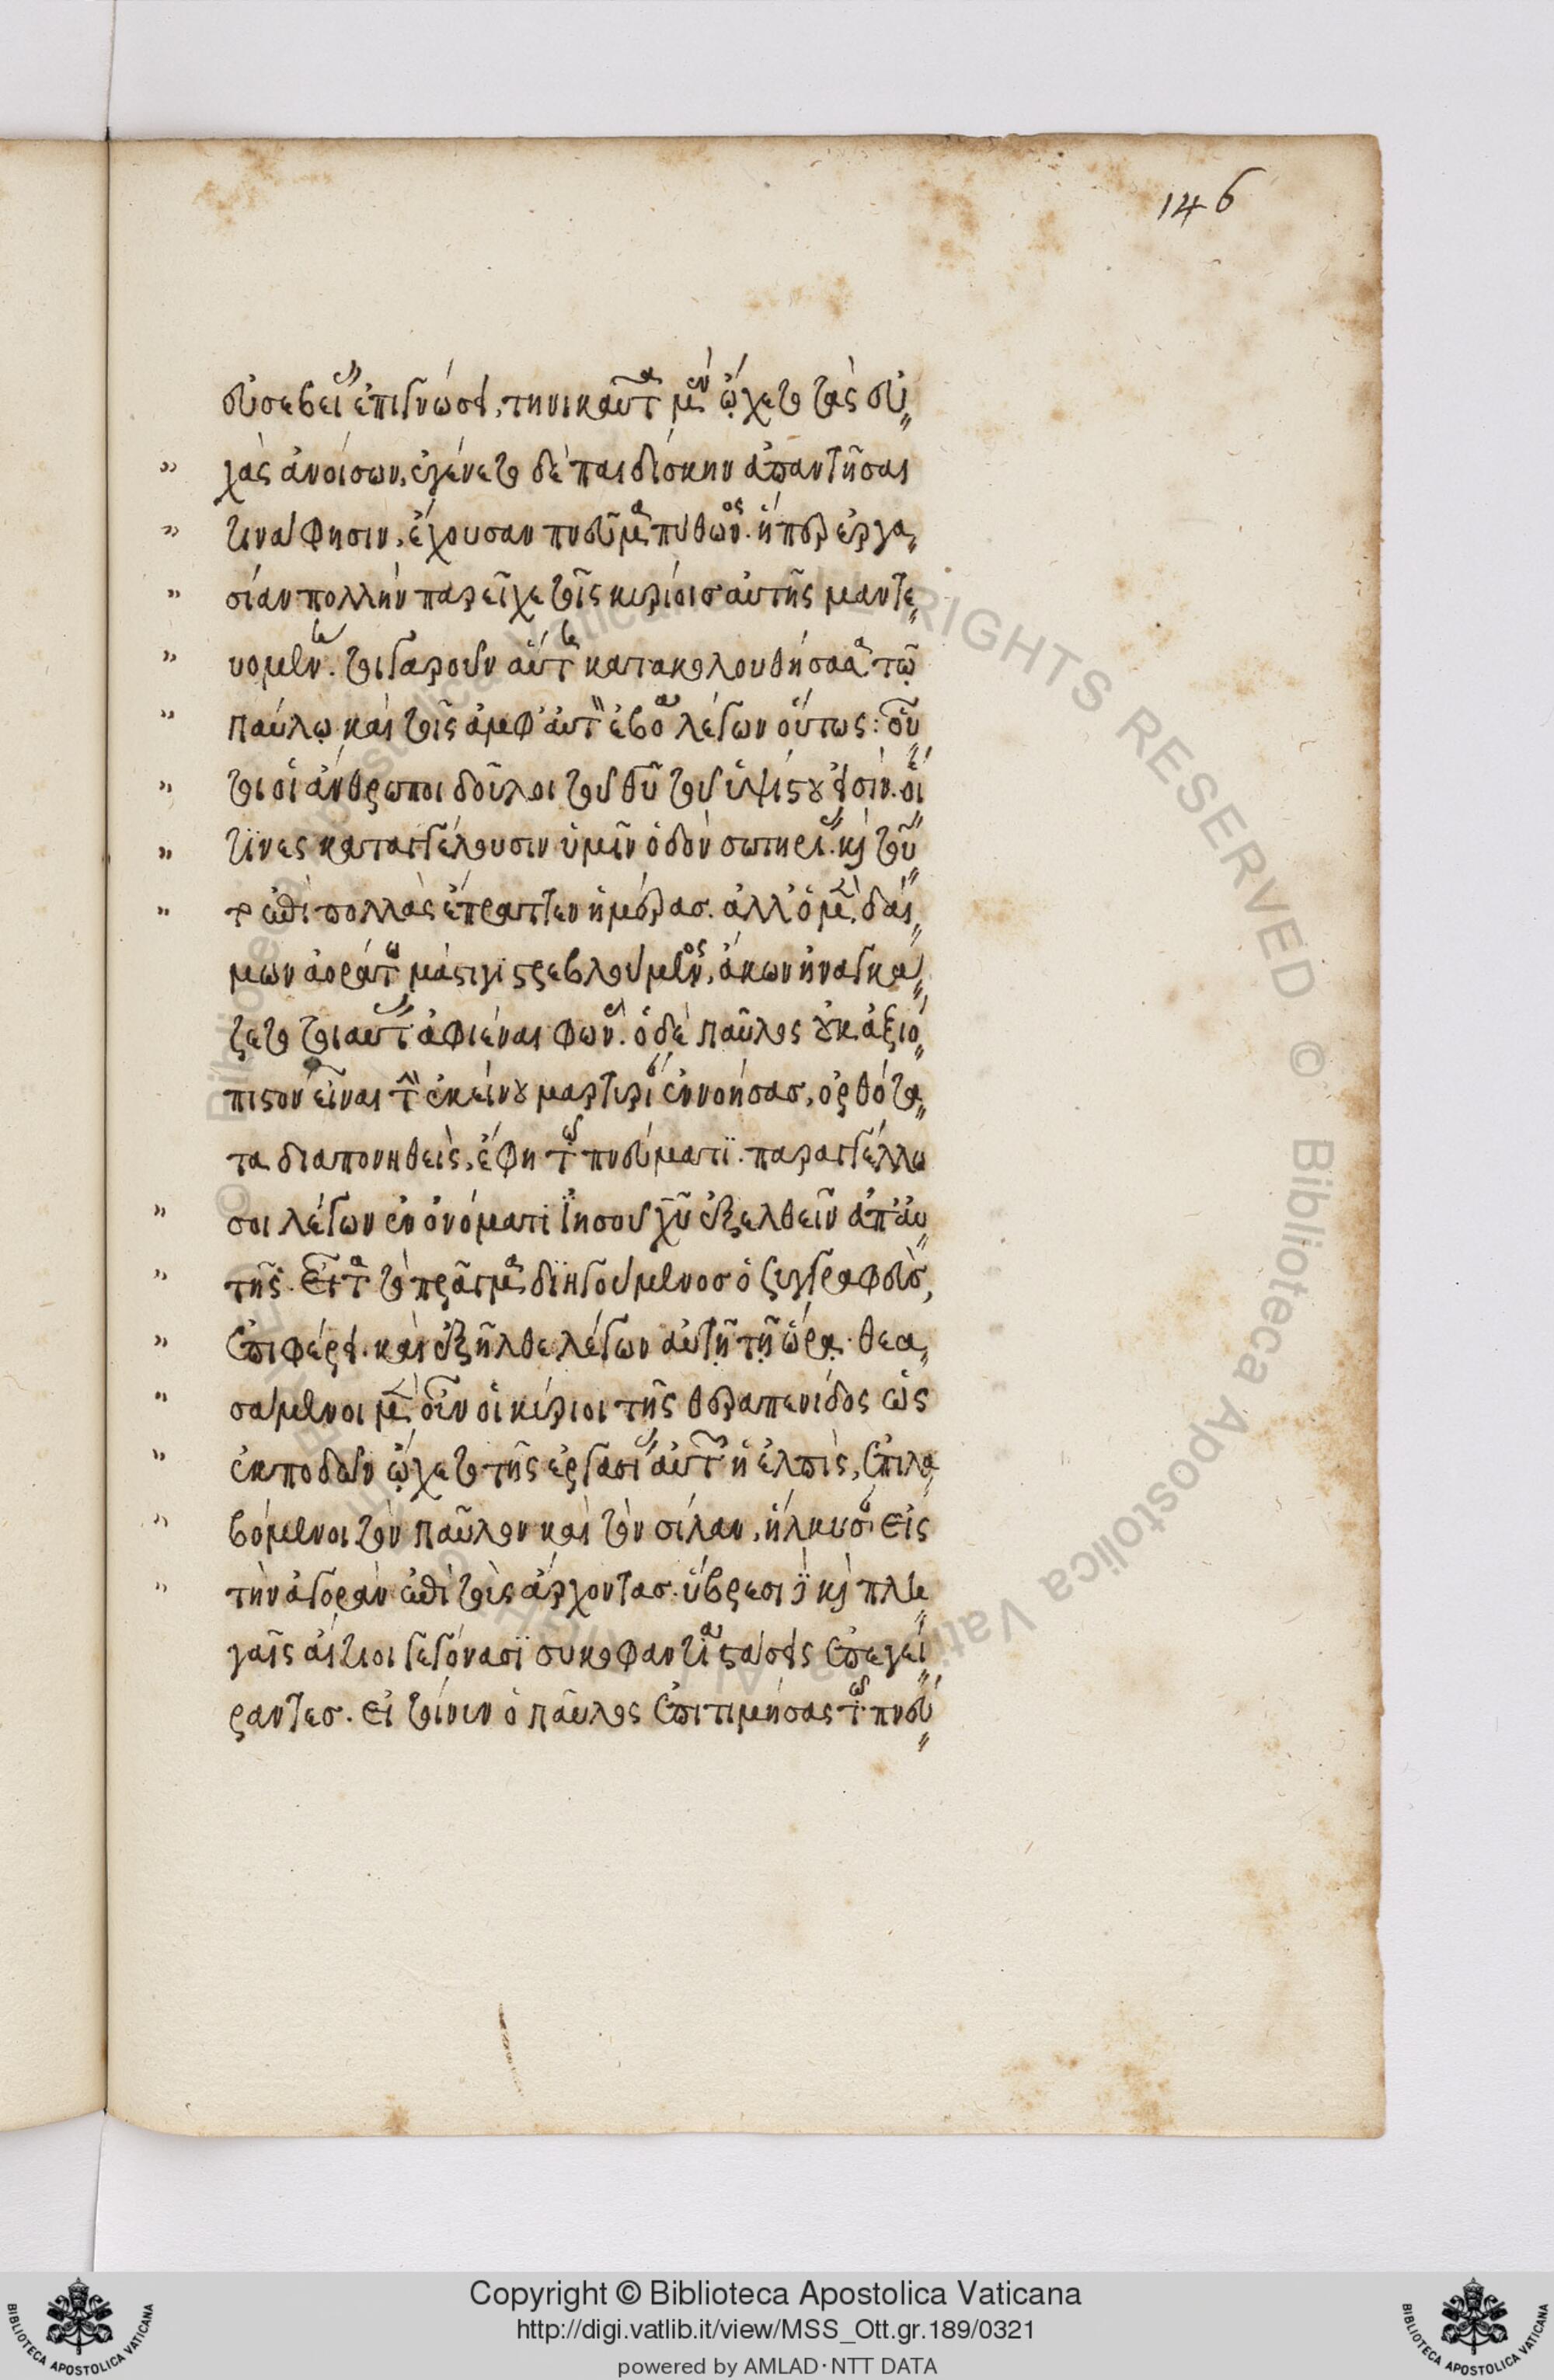 146
εὐσεβείας ἐπιγνώσει, τηνικαῦτα μὲν ᾤχετο τὰς εὐ
χὰς ἀνοίσων, ἐγένετο δὲ παιδίσκην ἀπαντῆσαι
τινά φησιν, ἔχουσαν πνεῦμα πύθωνος. ἥπερ ἐργα
σίαν πολλὴν παρεῖχε τοῖς κυρίοις αὐτῆς μαντε
υομένη. τοιγαροῦν αὕτη κατακολουθήσασα τῷ
παύλῳ καὶ τοῖς ἀμφ' αὐτὸν ἐβόα λέγων οὕτως: οὗ
τοι οἱ ἄνθρωποι δοῦλοι τοῦ θῦ τοῦ ὑψίστου εἰσίν. οἵ
τινες καταγγέλουσιν ὑμῖν ὁδὸν σωτηρίας. καὶ τοῦ
το ἐπὶ πολλὰς ἔπραττεν ἡμέρας. ἀλλ' ὁ μὲν δαί
μων ἀοράτω μάστιγι στρεβλούμενος, ἄκων ἠναγκά
ζετο τοιαύτας ἀφιέναι φωνάς. ὁ δὲ παῦλος οὐκ ἀξιό
πιστον εἶναι τὴν ἐκείνου μαρτυρίαν ἐννοήσας, ὀρθότα
τα διαπονηθεὶς, ἔφη τῷ πνεύματι. παραγγέλλω
σοι λέγων ἐν ὀνόματι Ἰησοῦ χῦ ἐξελθεῖν ἀπ' αὐ
τῆς. Εἶτα τὸ πρᾶγμα διηγούμενος ὁ ξυγγραφεὺς,
ἐπιφέρει. καὶ ἐξῆλθε λέγων αὐτῇ τῇ ὥρᾳ. θεα
σάμενοι μὲν οὖν οἱ κύριοι τῆς θεραπενίδος ὡς
ἐκποδὼν ᾤχετο τῆς ἐργασίας αὐτῶν ἡ ἐλπὶς, ἐπιλα
βόμενοι τὸν παῦλον καὶ τὸν σίλαν, ἥλκυσαν εἰς
τὴν ἀγορὰν ἐπὶ τοὺς ἄρχοντας. ὕβρεσί τε καὶ πλη
γαῖς αἴτιοι γεγόνασι συκοφαντίας στάσεις ἐπεγεί
ραντες. εἰ τοίνυν ὁ παῦλος ἐπιτιμήσας τῷ πνεύ
Copyright © Biblioteca Apostolica Vaticana
http://digi.vatlib.it/view/MSS_Ott.gr.189/0321
powered by AMLAD·NTT DATA